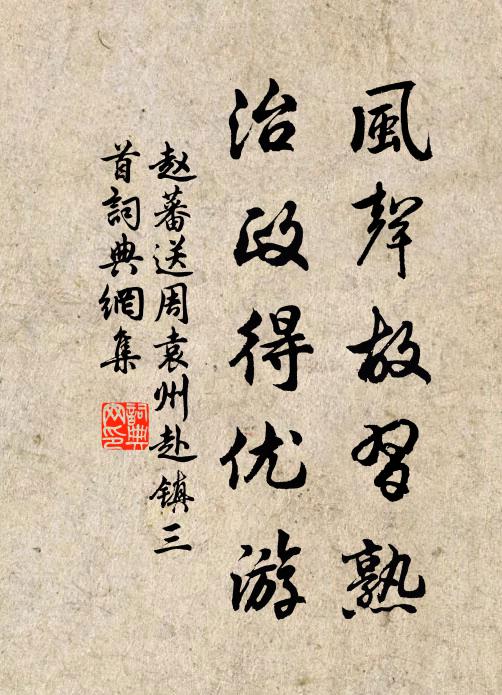 風聲故習熟
治政得优游
赵蕃送周袁州赴鎮三
首詞典網集
詞典
网印